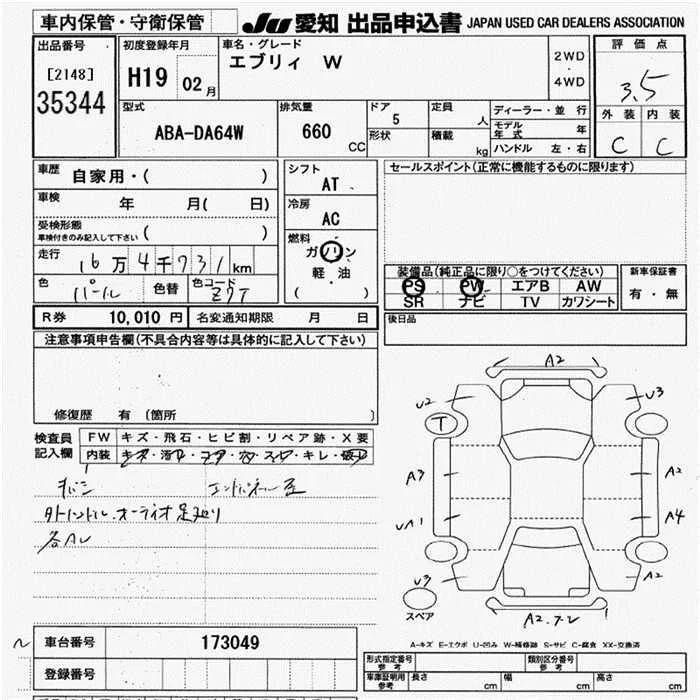 車内保管・守衛保管
JU 愛知 出品申込書 JAPAN USED CAR DEALERS ASSOCIATION
出品番号
[2148]
35344
初度登録年月
H19 02月
車名・グレード
エブリィ W
2WD
・
4WD
評価点
3.5
外装 内装
C C
型式
ABA-DA64W
排気量
660 CC
ドア 5
形状
定員 人
積載 kg
ディーラー・並行
モデル年式 年
ハンドル 左・右
車歴 自家用・( )
車検 年 月( 日)
受検形態
車検付きのみ記入して下さい ( )
走行 16万4千731km
色 パール 色替 色コード Z7T
シフト
AT
冷房
AC
燃料
ガソリン
軽・油
( )
セールスポイント(正常に機能するものに限ります)
装備品(純正品に限り○をつけてください)
PS PW エアB AW
SR ナビ TV カワシート
新車保証書
有・無
後日品
R券 10,010 円 名変通知期限 月 日
注意事項申告欄(不具合内容等は具体的に記入して下さい)
修復歴 有 (箇所 )
検査員
記入欄
FW キズ・飛石・ヒビ割・リペア跡・X要
内装 キズ・汚レ・コゲ・穴・スレ・キレ・破レ
外ハンドル、オーディオ足廻り
各AL
A2
U2
U3
T
A3
A2
UA1
A4
U3
A2
スペア
A2
A-キズ E-エクボ U-凹み W-補修跡 S-サビ C-腐食 XX-交換済
車台番号 173049
登録番号
形式指定番号
参考
類別区分番号
参考
車庫証明用
参考
長さ cm 幅 cm 高さ cm